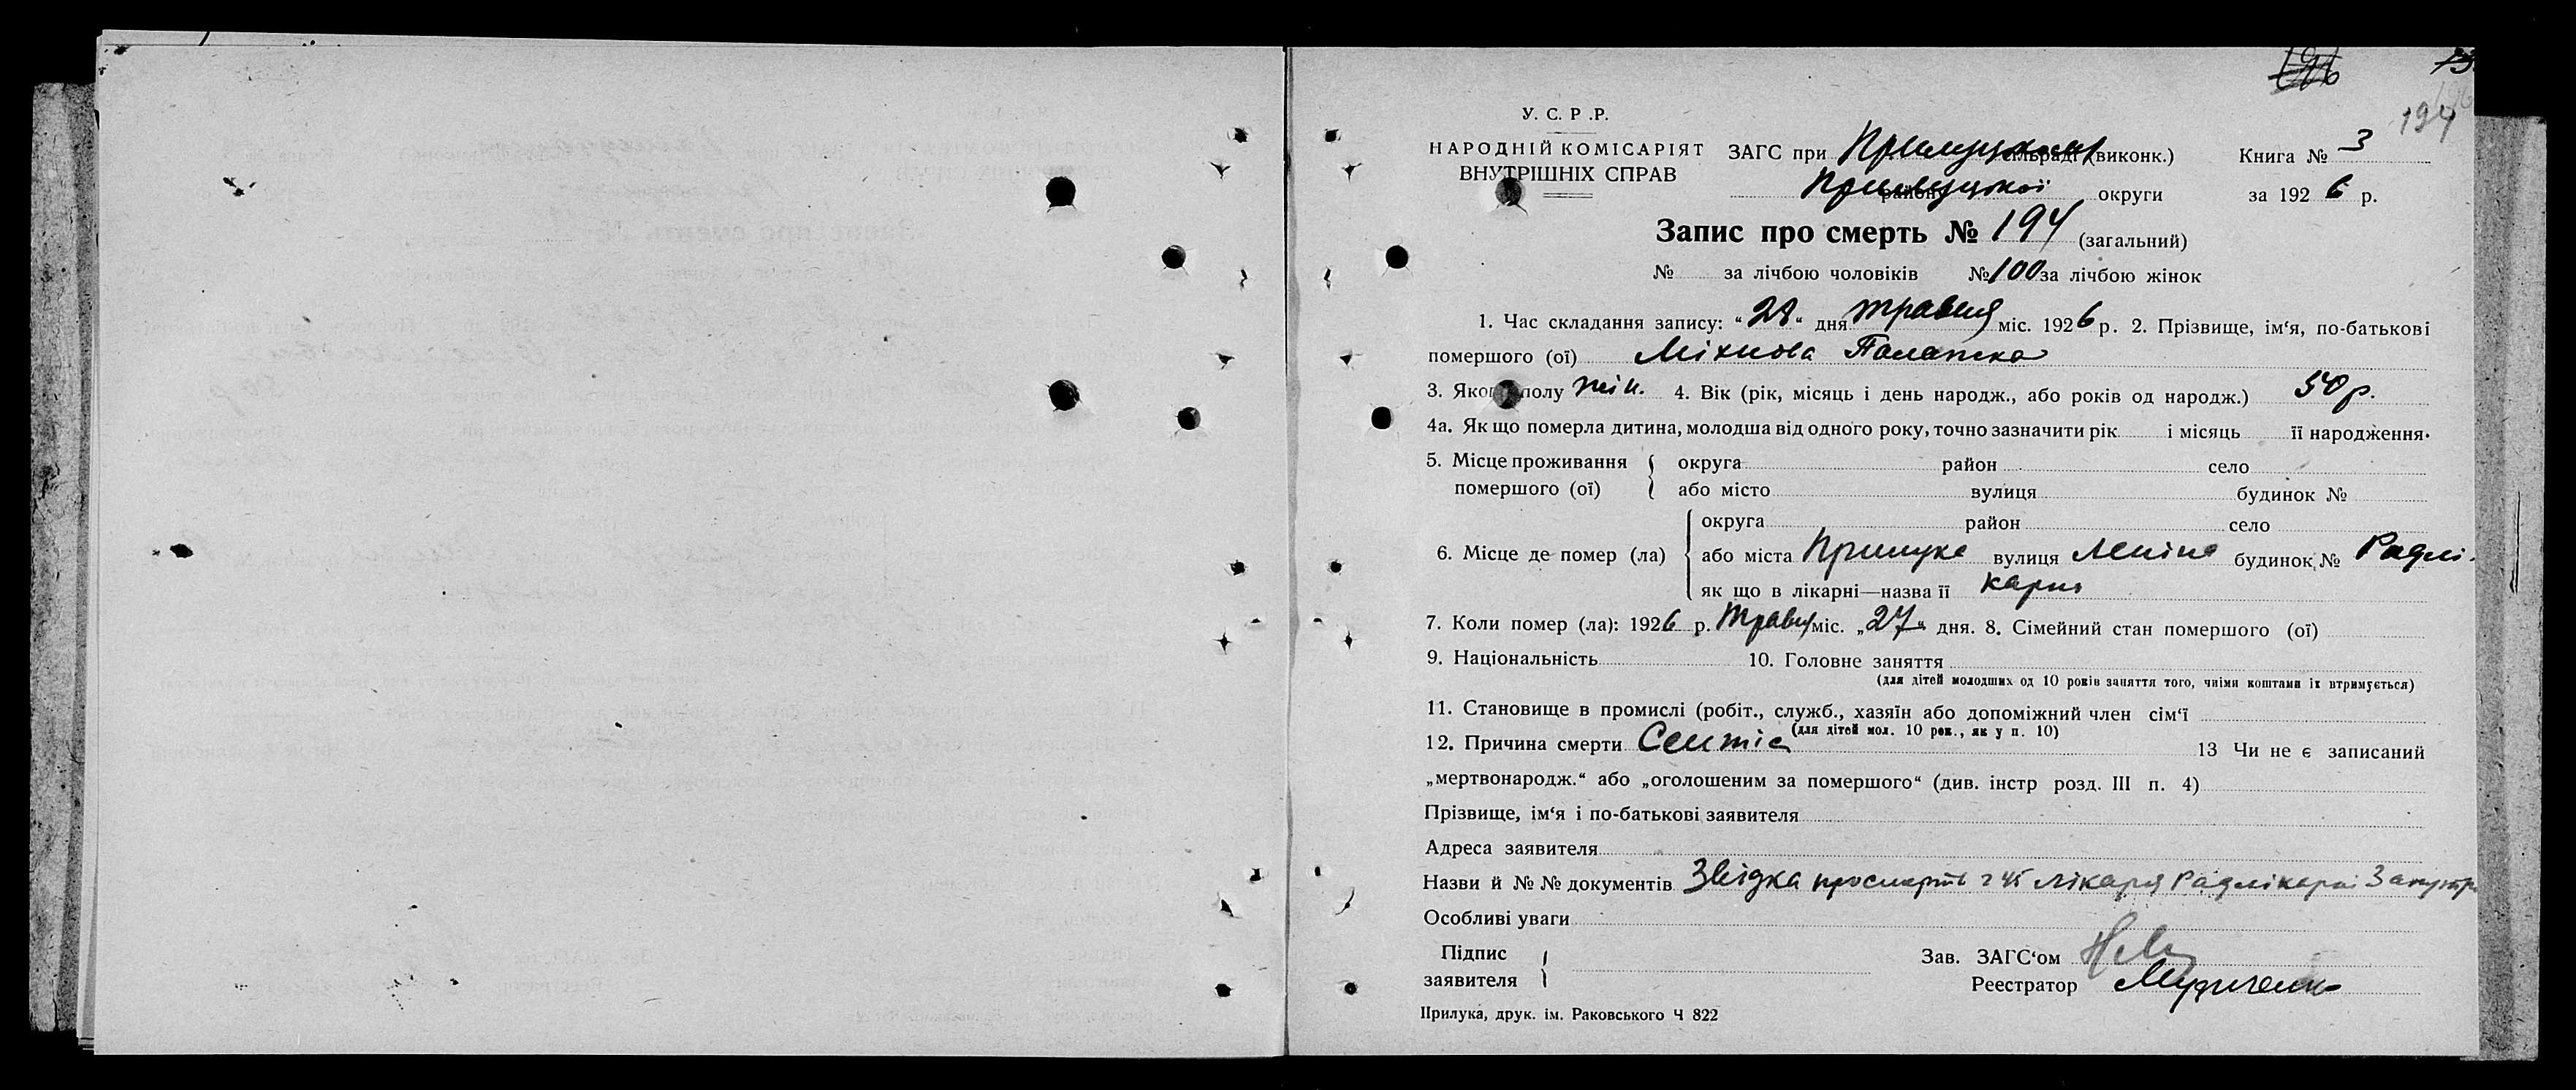 196
194
У. С. Р .Р.
НАРОДНІЙ КОМІСАРІЯТ
ВНУТРІШНІХ СПРАВ
ЗАГС при Прилуцькім сільраді (виконк.) Книга № 3
Прилуцької району округи за 1926 р.
Запис про смерть № 194 (загальний)
№ за лічбою чоловіків № 100 за лічбою жінок
1. Час складання запису: “28“ дня травня міс. 1926 р. 2. Прізвище, ім‘я, по-батькові
помершого (ої) Міхнова Палажка
3. Якого полу жін. 4. Вік (рік, місяць і день народж., або років од народж.) 50 р.
4а. Як що померла дитина, молодша від одного року, точно зазначити рік і місяць її народження.
5. Місце проживання помершого (ої) округа район село
або місто вулиця будинок №
6. Місце де помер (ла) округа район село
або міста Прилука вулиця Леніна будинок № Радлі-
як що в лікарні—назва її карня
7. Коли помер (ла): 1926 р. Травня міс. „27“ дня. 8. Сімейний стан помершого (ої)
9. Національність 10. Головне заняття
(для дітей молодших од 10 років заняття того, чиїми коштами їх втримується)
11. Становище в промислі (робіт., служб., хазяїн або допоміжний член сім‘ї
(для дітей мол. 10 рок., як у п. 10)
12. Причина смерти Септіс 13 Чи не є записаний
„мертвонародж.“ або „оголошеним за помершого“ (див. інстр розд. III п. 4)
Прізвище, ім‘я і по-батькові заявителя
Адреса заявителя
Назви й №№ документів Звідка про смерть ч 45 лікаря Радлікарні
Особливі уваги
Підпис заявителя
Зав. ЗАГС‘ом
Реєстратор
Прилука, друк. ім. Раковського Ч 822